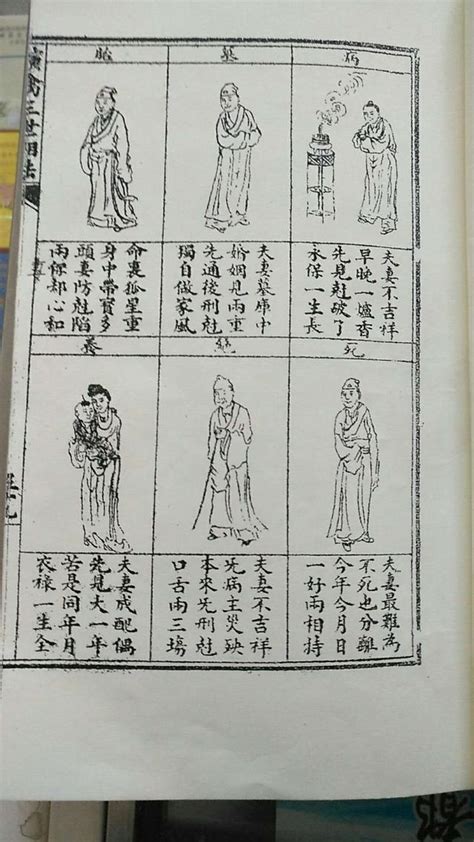 病
夫妻不吉祥
早晚一爐香
先見尅破了
永保一生長
墓
夫妻墓庫中
婚姻見兩重
先通後刑尅
獨自做家風
胎
命裏孤星重
身中帶寶多
頭妻防尅陷
兩保却心和
死
夫妻最難為
不死也分離
今年今月日
一好兩相持
絕
夫妻不吉祥
先病主災殃
本來先刑尅
口舌兩三塲
養
夫妻成配偶
先見大一年
若是同年月
衣祿一生全
演禽三世相法